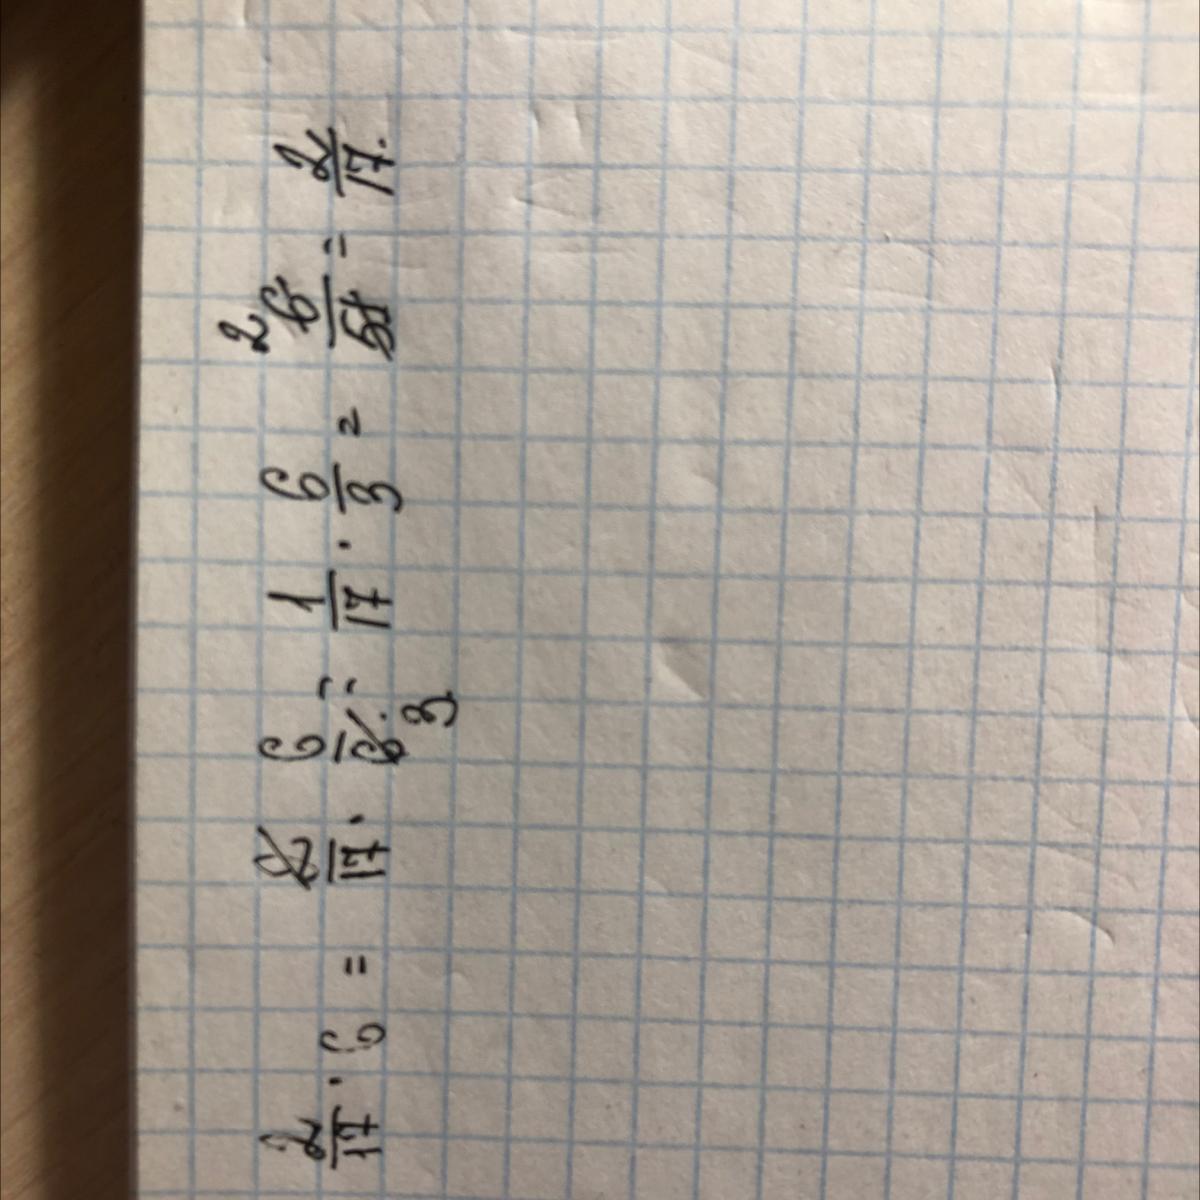 2/17 · 6 = 2/17 · 6/6 = 1/17 · 6/3 = 6/51 = 2/17.
3 2